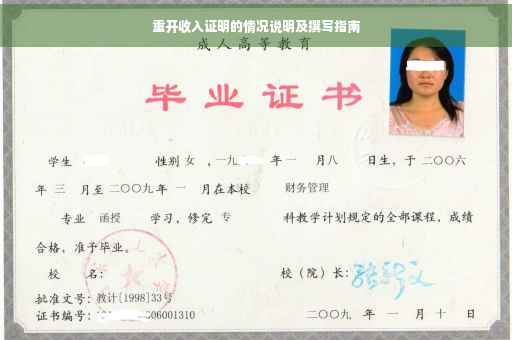 重开收入证明的情况说明及撰写指南
成人高等教育
毕业证书
学生 性别 女 ,一九 年一 月八 日生,于二〇〇六
年 三 月至二〇〇九年 一 月在本校 财务管理
专业 函授 学习,修完 专 科教学计划规定的全部课程,成绩
合格,准予毕业。
校 名: 校(院)长:
批准文号:教计[1998]33号
证书编号: 06001310 二〇〇九 年 一 月 十 日